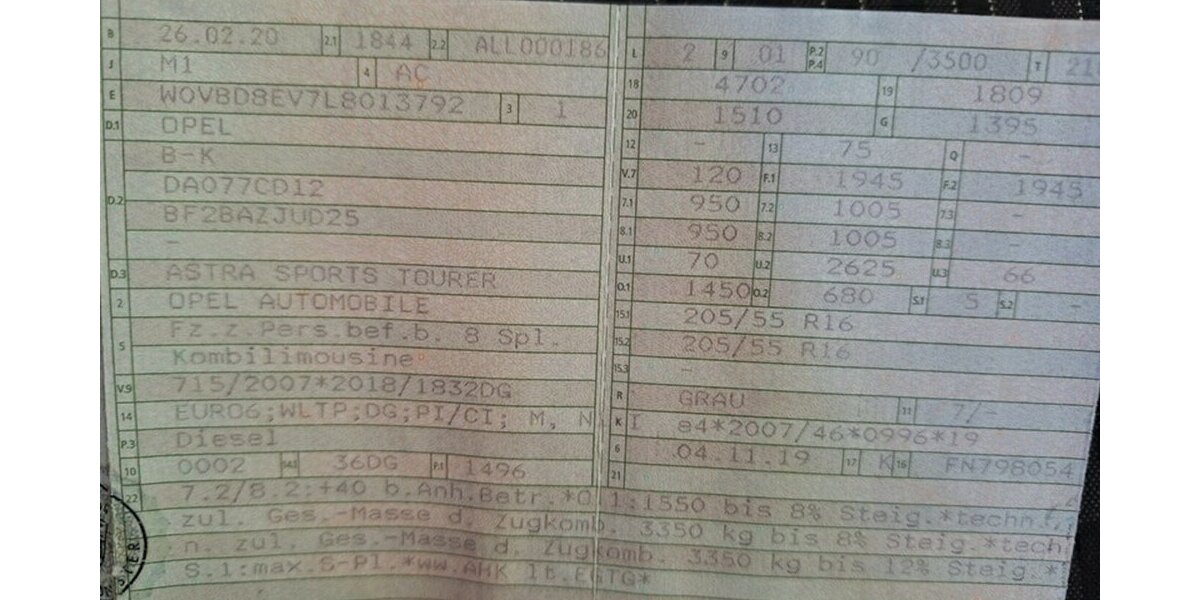 B 26.02.20 2.1 1844 2.2 ALL000186
J M1 4 AC
E W0VBD8EV7L8013792 3 1
D.1 OPEL
B-K
D.2 DA077CD12
BF2BAZJUD25
-
D.3 ASTRA SPORTS TOURER
2 OPEL AUTOMOBILE
5 Fz.z.Pers.bef.b. 8 Spl.
Kombilimousine
V.9 715/2007*2018/1832DG
14 EURO6;WLTP;DG;PI/CI; M, N I
P.3 Diesel
10 0002 14.1 36DG P.1 1496
L 2 9 01 P.2 P.4 90 /3500 T 21
18 4702 19 1809
20 1510 G 1395
12 - 13 75 Q -
V.7 120 F.1 1945 F.2 1945
7.1 950 7.2 1005 7.3 -
8.1 950 8.2 1005 8.3 -
U.1 70 U.2 2625 U.3 66
O.1 1450 O.2 680 S.1 5 S.2 -
15.1 205/55 R16
15.2 205/55 R16
15.3 -
R GRAU 11 7/-
K e4*2007/46*0996*19
6 04.11.19 17 K 16 FN798054
21
22 7.2/8.2:+40 b.Anh.Betr.*O.1:1550 bis 8% Steig.*techn.
zul. Ges.-Masse d. Zugkomb. 3350 kg bis 8% Steig.*tech
n. zul. Ges.-Masse d. Zugkomb. 3350 kg bis 12% Steig.*
S.1:max.5-Pl.*ww.AHK lt.EGTG*